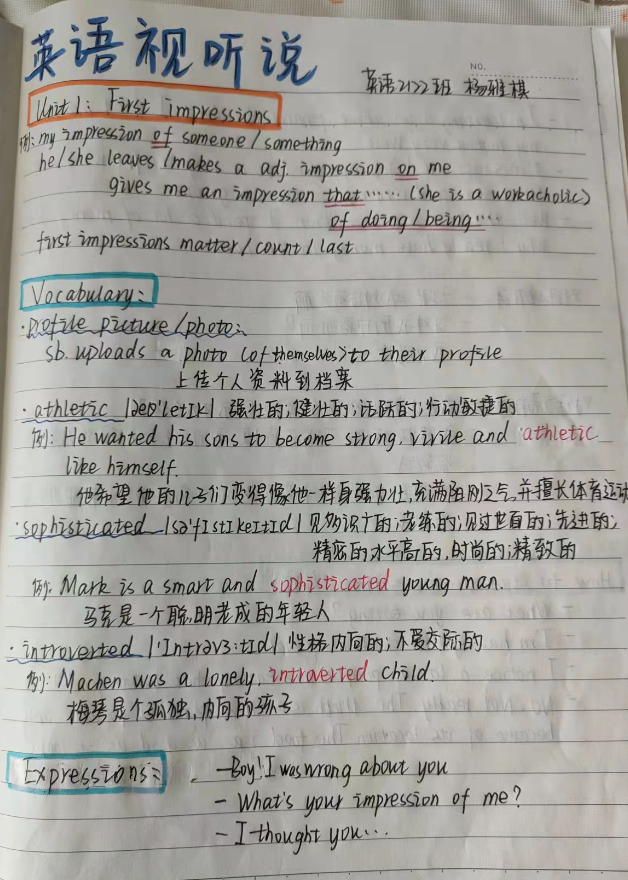 英语视听说
NO.
英语2122班 杨雅棋
Unit 1: First impressions
例: my impression of someone / something
he/she leaves /makes a adj. impression on me
gives me an impression that …… (she is a workacholic)
of doing / being ……
first impressions matter / count / last
Vocabulary:
·profile picture / photo:
sb. uploads a photo (of themselves) to their profile
上传个人资料到档案
·athletic |æθ'letIk| 强壮的;健壮的;活跃的;行动敏捷的
例: He wanted his sons to become strong, virile and athletic
like himself.
他希望他的儿子们变得像他一样身强力壮,充满阳刚之气,并擅长体育运动
·sophisticated |sə'fIstIkeItId| 见多识广的;老练的;见过世面的;先进的;
精密的水平高的,时尚的;精致的
例: Mark is a smart and sophisticated young man.
马克是一个聪明老成的年轻人
·introverted |'Intrəvɜ:tId| 性格内向的;不爱交际的
例: Machen was a lonely, introverted child.
梅琴是个孤独、内向的孩子
Expressions:
—Boy! I was wrong about you
— What's your impression of me?
— I thought you…